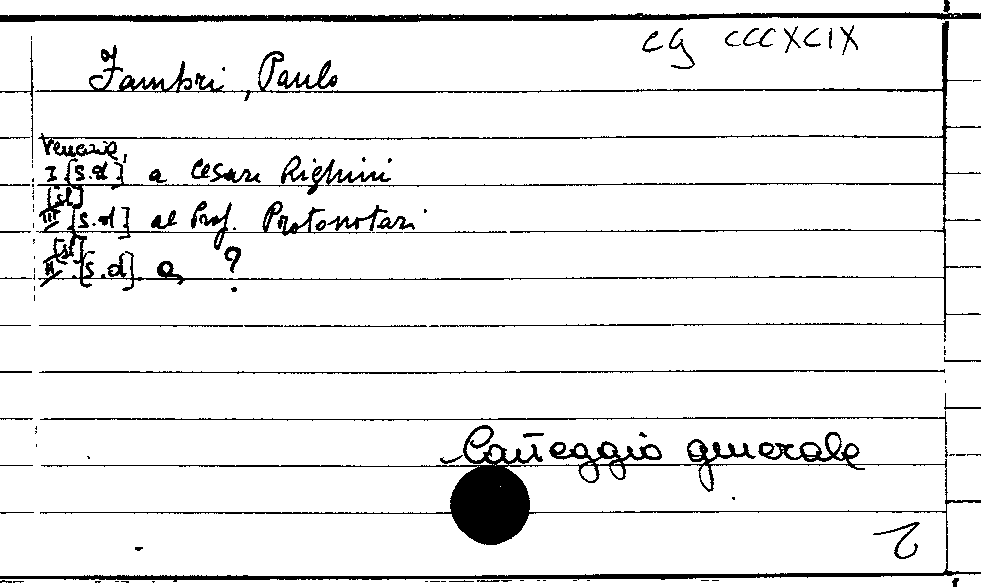 CG CCCXCIX
Fambri, Paulo
Venezia,
I [s.d] a Cesare Righini
[sl]
III [s.d] al Prof. Protonotari
[sl]
II [s.d] a ?
Carteggio generale